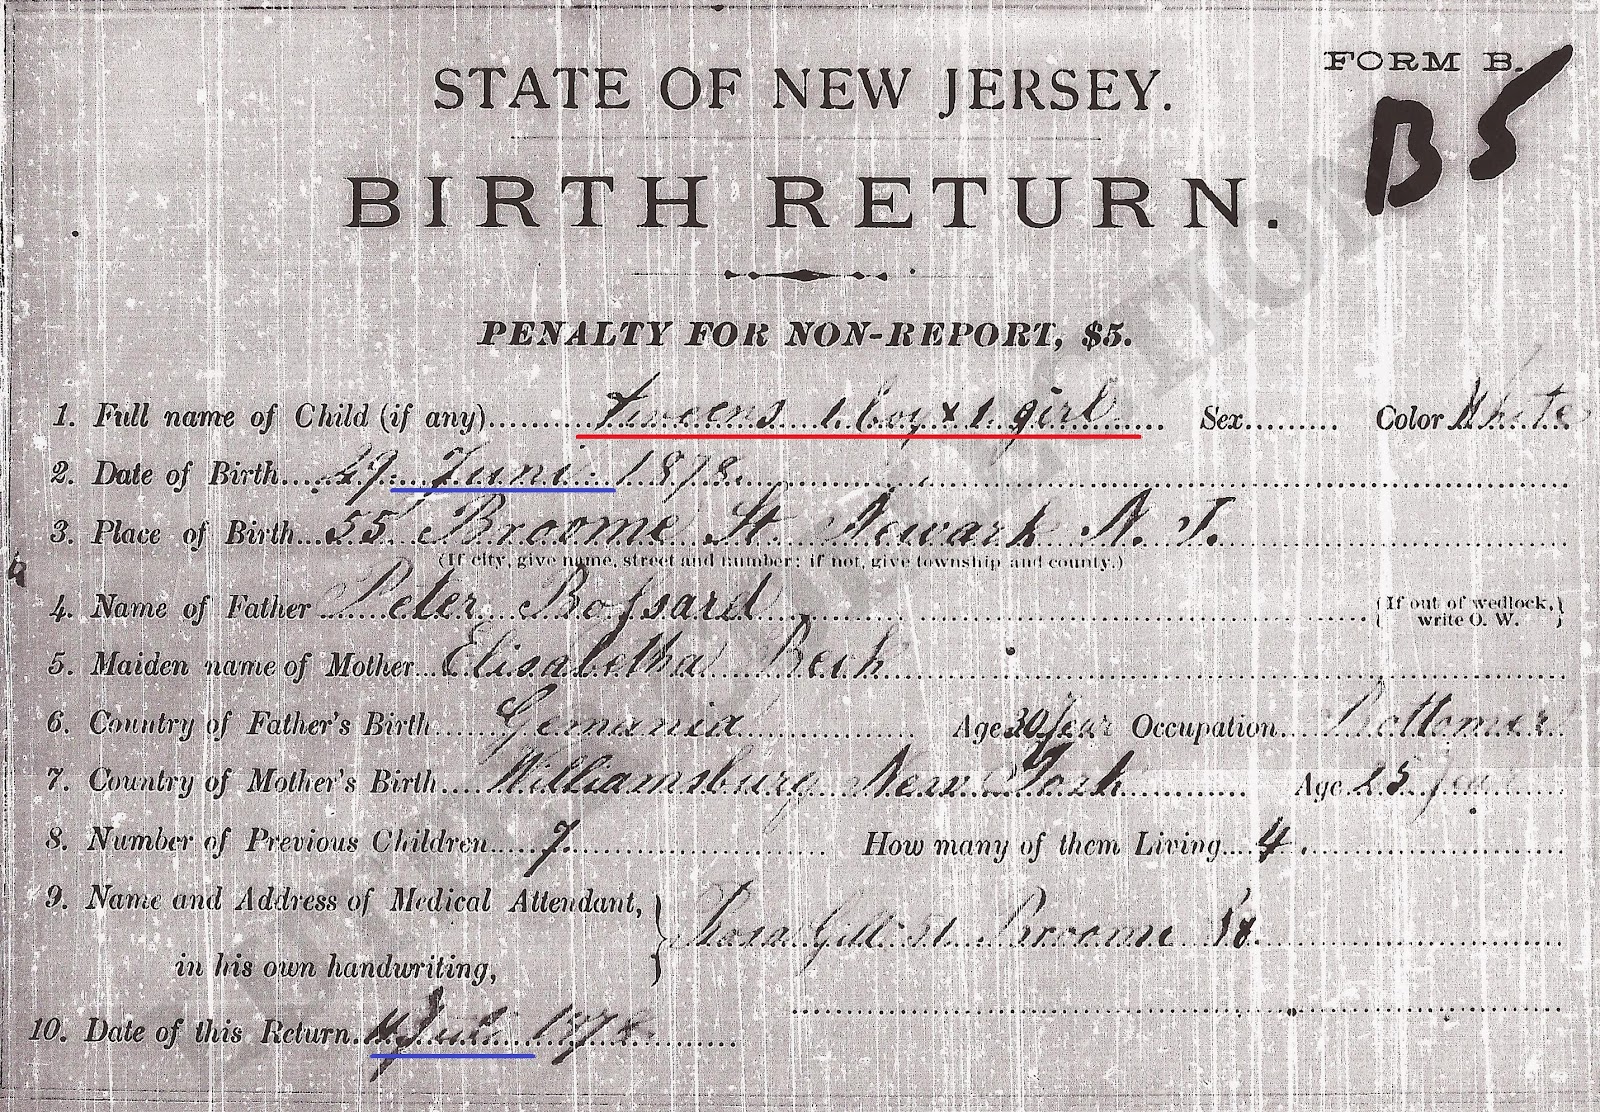 FORM B.
B5
STATE OF NEW JERSEY.
BIRTH RETURN.
PENALTY FOR NON-REPORT, $5.
1. Full name of Child (if any) tweens 1 boy & 1 girl Sex Color White
2. Date of Birth 29 Juni 1878
3. Place of Birth 55 Broome St Newark N. J.
(If city, give name, street and number; if not, give township and county.)
4. Name of Father Peter Bossard (If out of wedlock, write O. W.)
5. Maiden name of Mother Elisabetha Bech
6. Country of Father's Birth Gemania Age 30 Jear Occupation
7. Country of Mother's Birth Williamsburg New York Age 25 Jear
8. Number of Previous Children 7 How many of them Living 4
9. Name and Address of Medical Attendant, Rosa Gill 51 Broome
in his own handwriting,
10. Date of this Return Juli 1878